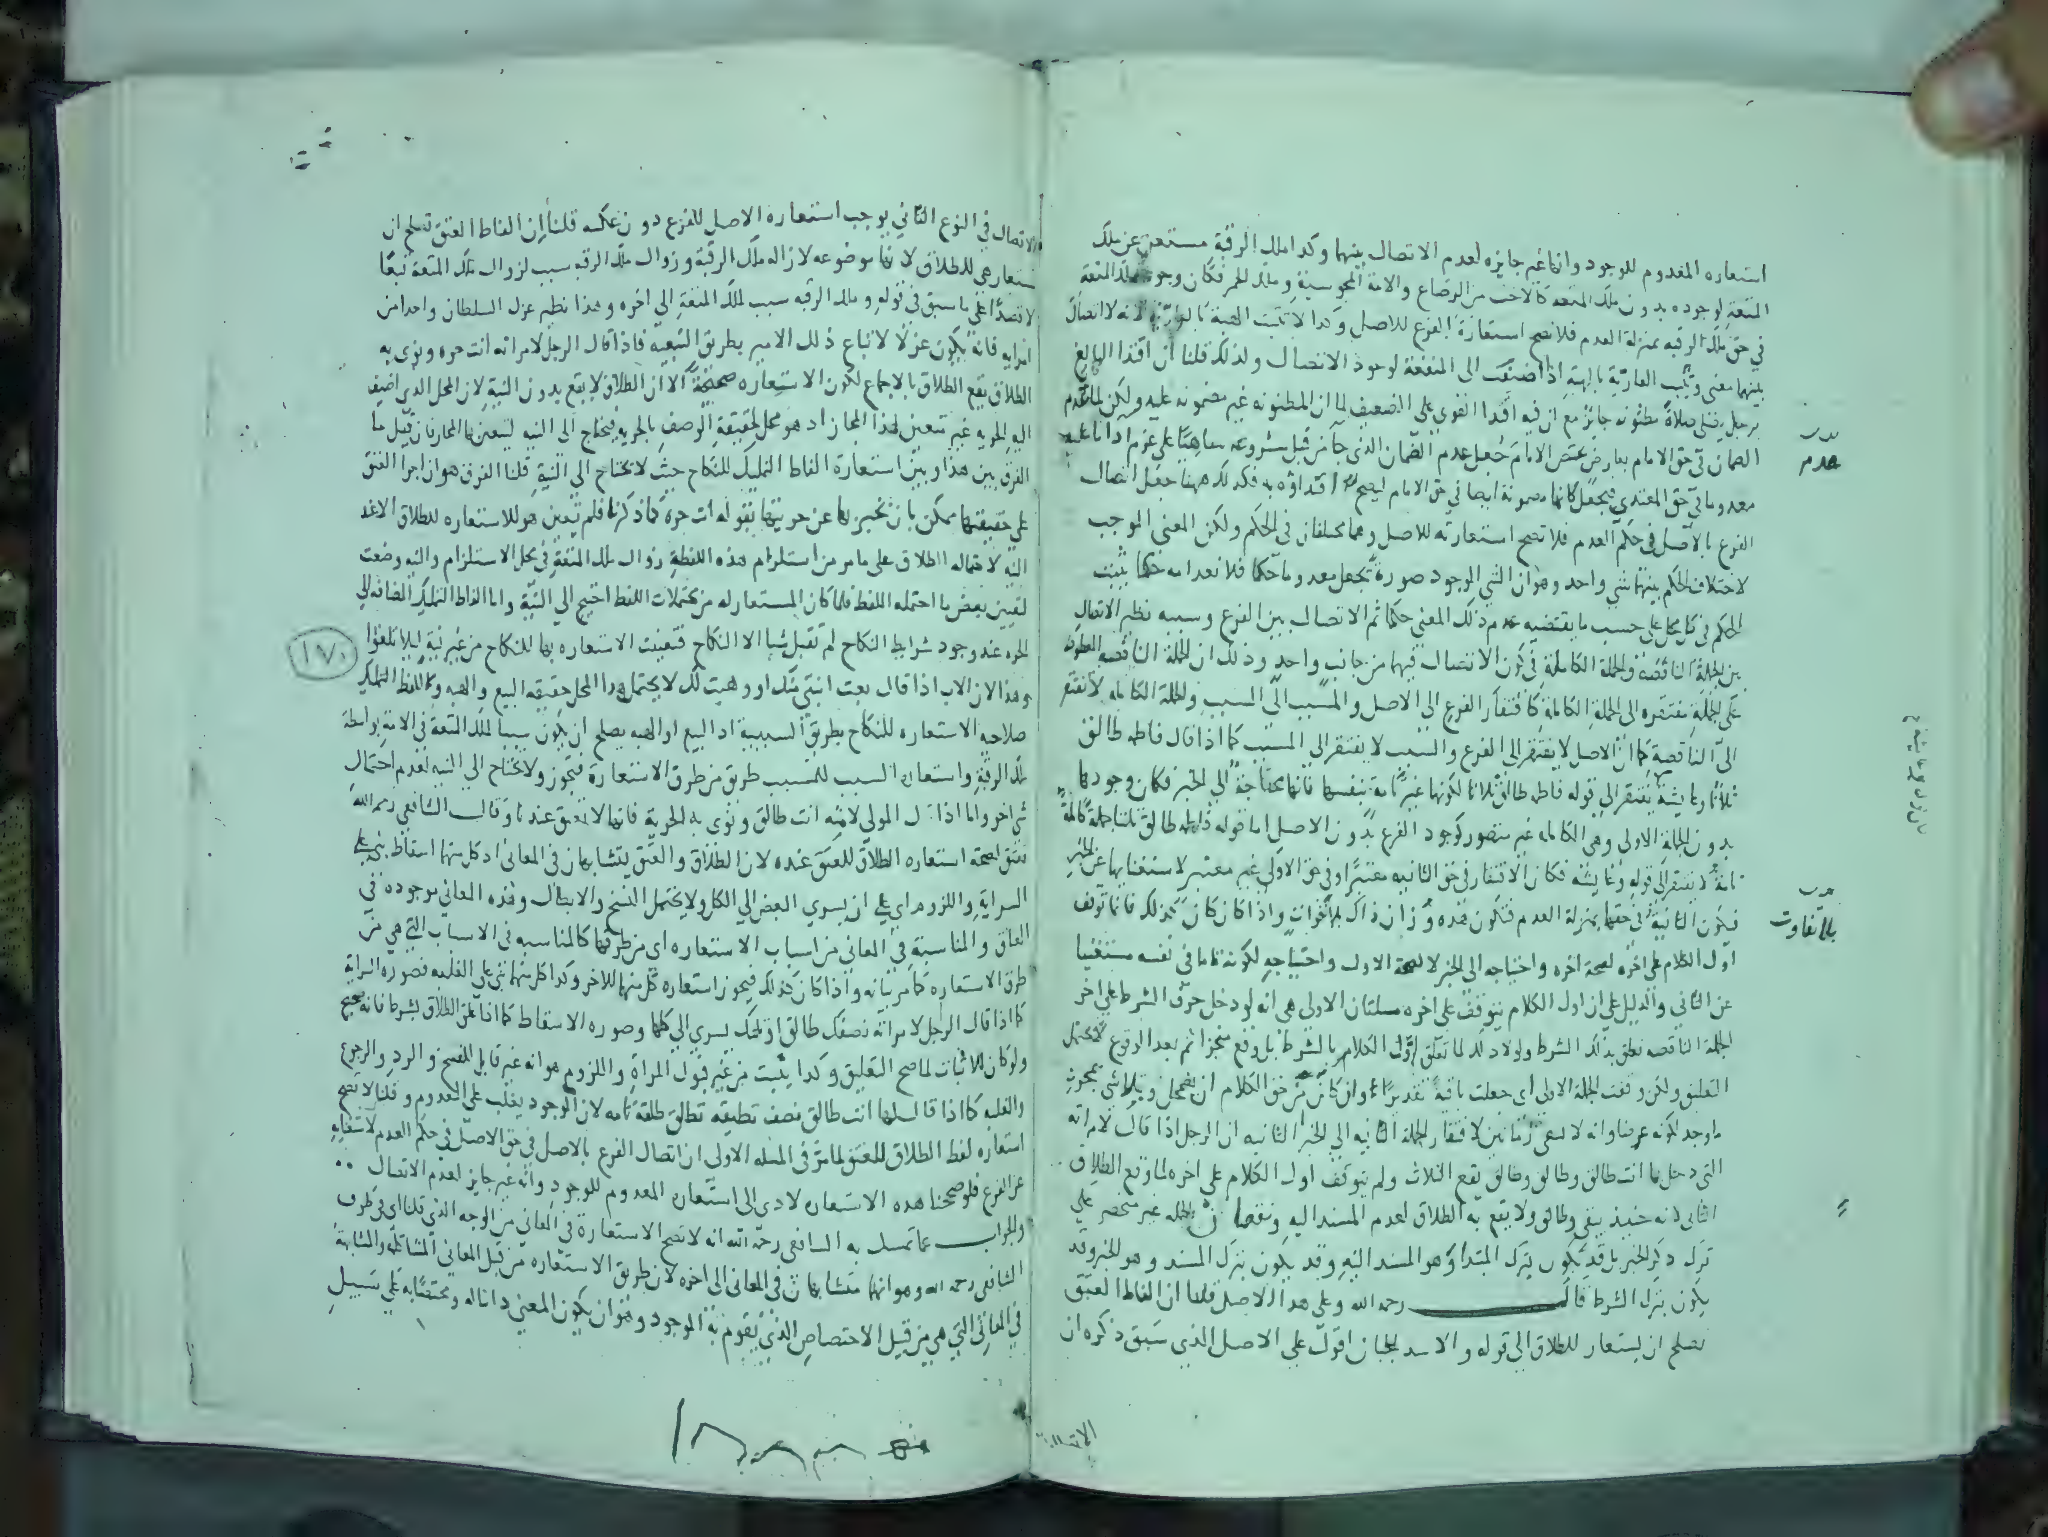 استعاره المعدوم للموجود وانها غير جايزه لعدم الاتصال بينهما وكذا ملك الرقبة مستغن عن ملك
المتعة لوجوده بدون ملك المتعة كالاخت من الرضاع والامة المجوسية وملك الخمر فكان وجود ملك المتعة
في حق ملك الرقبه بمنزلة العدم فلا تصح استعارة الفرع للاصل وكذا لا تثبت الهبة بالعارية لانه لا اتصال
بينهما معنى وتثبت العارية بالهبة اذا اضيفت الى المنفعة لوجود الاتصال ولذلك قلنا ان اقتدا البالغ
برجل يصلى صلاة مظنونه جايز مع ان فيه اقتدا القوي على الضعيف لما ان المظنونه غير مضمونه عليه ولكن لما عدم
الضمان في حق الامام بعارض يخص الامام جعل عدم الضمان الذي جا من قبل شروعه ساهيا على عزم اداء ما عليه
معدوما في حق المقتدي فيجعل كانها مضمونة ايضا في حق الامام ليصح اقتداؤه به فكذلك ههنا جعل اتصال
الفرع بالاصل في حكم العدم فلا تصح استعارته للاصل وهما مختلفان في الحكم ولكن المعنى الموجب
لاختلاف الحكم بينهما شي واحد وهو ان الشي الموجود صورة يجعل معدوما حكما فلانعدامه حكما يثبت
الحكم في كل محل على حسب ما يقتضيه عدم ذلك المعنى حكما ثم الاتصال بين الفرع وسببه نظير الاتصال
بين الجملة الناقصة والجملة الكاملة في كون الاتصال فيهما من جانب واحد وذلك ان الجملة الناقصة المعطوفه
على الجملة مفتقره الى الجملة الكاملة كافتقار الفرع الى الاصل والمسبب الى السبب والجملة الكامله لا تفتقر
الى الناقصة كما ان الاصل لا يفتقر الى الفرع والسبب لا يفتقر الى المسبب كما اذا قال فاطمه طالق
ثلاثا وعايشة يفتقر الى قوله فاطمه طالق ثلاثا لكونها غير تامة بنفسها فانها محتاجة الى الخبر فكان وجودها
بدون الجملة الاولى وهي الكامله غير متصور كوجود الفرع بدون الاصل اما قوله فاطمه طالق ثلثا جملة كاملة
تامة لا تفتقر الى قوله وعايشة فكان الافتقار في حق الثانيه معتبرا وفي حق الاولى غير معتبر لاستغنايها عن الخبر
فتكون الثانية في حقها بمنزلة العدم فتكون هذه وزان ذاك بلا تفاوت واذا كان كذلك فانما توقف
اول الكلام على اخره لصحة اخره واحتياجه الى الخبر لا لصحة الاول واحتياجه لكونه تاما في نفسه مستغنيا
عن الثاني والدليل على ان اول الكلام يتوقف على اخره مسلتان الاولى هي انه لو دخل حرف الشرط على اخر
الجملة الناقصه تعلق بذلك الشرط ولولا ذلك لما تعلق اول الكلام بالشرط بل وقع منجزا ثم بعد الوقوع لا يحتمل
التعليق ولكن وقفت الجملة الاولى اى جعلت باقية تقديرا وان كان من حق الكلام ان يضمحل ويتلاشى بمجرد
ما وجد لكونه عرضا وانه لا يبقى زمانين لافتقار الجملة الثانيه الى الخبر الثانيه ان الرجل اذا قال لامراته
التي دخل بها انت طالق وطالق وطالق يقع الثلاث ولم يتوقف اول الكلام على اخره لما وقع الطلاق
الثاني لانه حينئذ يبقى وطالق ولا يقع به الطلاق لعدم المسند اليه ونقصان الجمله غير منحصر على
ترك ذكر الخبر بل قد يكون بترك المبتدا وهو المسند اليه وقد يكون بترك المسند وهو الخبر وقد
يكون بترك الشرط قال رحمه الله وعلى هذا الاصل قلنا ان الفاظ العتق
تصلح ان يستعار للطلاق الى قوله والاسد للجبان اقول على الاصل الذي سبق ذكره ان
عدم
بلا تفاوت
الاتصال في النوع الثاني يوجب استعارة الاصل للفرع دون عكسه قلنا ان الفاظ العتق تصلح ان
تستعار هي للطلاق لانها موضوعه لازاله ملك الرقبة وزوال ملك الرقبه سبب لزوال ملك المتعة تبعا
لا قصدا على ما سبق في قوله وملك الرقبه سبب لملك المتعة الى اخره وهذا نظير عزل السلطان واحدا من
امرايه فانه يكون عزلا لاتباع ذلك الامير بطريق التبعية فاذا قال الرجل لامراته انت حره ونوى به
الطلاق يقع الطلاق بالاجماع لكون الاستعاره صحيحة الا ان الطلاق لا يقع بدون النية لان المحل الذي اضيف
اليه الحريه غير متعين لهذا المجاز اذ هو محل لحقيقة الوصف بالحريه فيحتاج الى النيه ليتعين بها المجاز فان قيل ما
الفرق بين هذا وبين استعارة الفاظ التمليك للنكاح حيث لا يحتاج الى النية قلنا الفرق هو ان اجرا العتق
على حقيقتها ممكن بان يخبر بها عن حريتها بقوله انت حرة كما ذكرنا فلم يتعين هو للاستعاره للطلاق الا عند
النيه لاحتماله الطلاق على ما مر من استلزام هذه اللفظة زوال ملك المتعة في محل الاستلزام والنيه وضعت
لتعيين بعض ما احتمله اللفظ فلما كان المستعار له من محتملات اللفظ احتيج الى النية واما الفاظ التمليك المضافه الى
الحره عند وجود شرايط النكاح لم تقبل شيا الا النكاح فتعينت الاستعاره بها للنكاح من غير نية ليلا تلغوا
وهذا لان الاب اذا قال بعت ابنتي منك او وهبت لك لا يحتمل هذا المحل حقيقه البيع والهبه وللفظ التمليك
صلاحيه الاستعاره للنكاح بطريق السببية اذ البيع او الهبه يصلح ان يكون سببا لملك المتعة في الامة بواسطة
ملك الرقبة واستعارة السبب للمسبب طريق من طرق الاستعارة فتجوز ولا يحتاج الى النيه لعدم احتمال
شي اخر واما اذا قال المولى لامته انت طالق ونوى به الحرية فانها لا تعتق عندنا وقال الشافعي رحمه الله
تعتق لصحة استعاره الطلاق للعتق عنده لان الطلاق والعتق يتشابهان في المعاني اذ كل منهما اسقاط بنى على
السراية واللزوم اي على ان يسري البعض الى الكل ولا يحتمل الفسخ والابطال وهذه المعاني موجوده في
العتاق والمناسبة في المعاني من اسباب الاستعاره اى من طرقها كالمناسبه في الاسباب التي هي من
طرق الاستعاره كما مر بيانه واذا كان كذلك فيجوز استعاره كل منهما للاخر وكذا كل منهما بنى على الغلبه فصوره السراية
كما اذا قال الرجل لامراته نصفك طالق او ثلثك يسري الى كلها وصوره الاسقاط كما اذا علق الطلاق بشرط فانه صحيح
ولو كان للاثبات لما صح التعليق وكذا يثبت من غير قبول المراة واللزوم هو انه غير قابل للفسخ والرد والرجوع
والغلبه كما اذا قال لها انت طالق نصف تطليقه تطلق طلقة تامه لان الموجود يغلب على المعدوم وقلنا لا تصح
استعاره لفظ الطلاق للعتق لما مر في المسله الاولى ان اتصال الفرع بالاصل في حق الاصل في حكم العدم لاستغنايه
عن الفرع فلو صححنا هذه الاستعاره لادى الى استعاره المعدوم للموجود وانه غير جايز لعدم الاتصال
والجواب عما تمسك به الشافعى رحمه الله انه لا تصح الاستعارة في المعاني من الوجه الذي قلنا اى في طرف
الشافعي رحمه الله وهو انهما متشابهان في المعانى الى اخره لان طريق الاستعاره من قبل المعاني المشاكله والمشابهة
في المعاني التي هي من قبيل الاختصاص الذي يقوم به الموجود وهو ان يكون المعنى دا ناله ومختصا به على سبيل
١٧٠